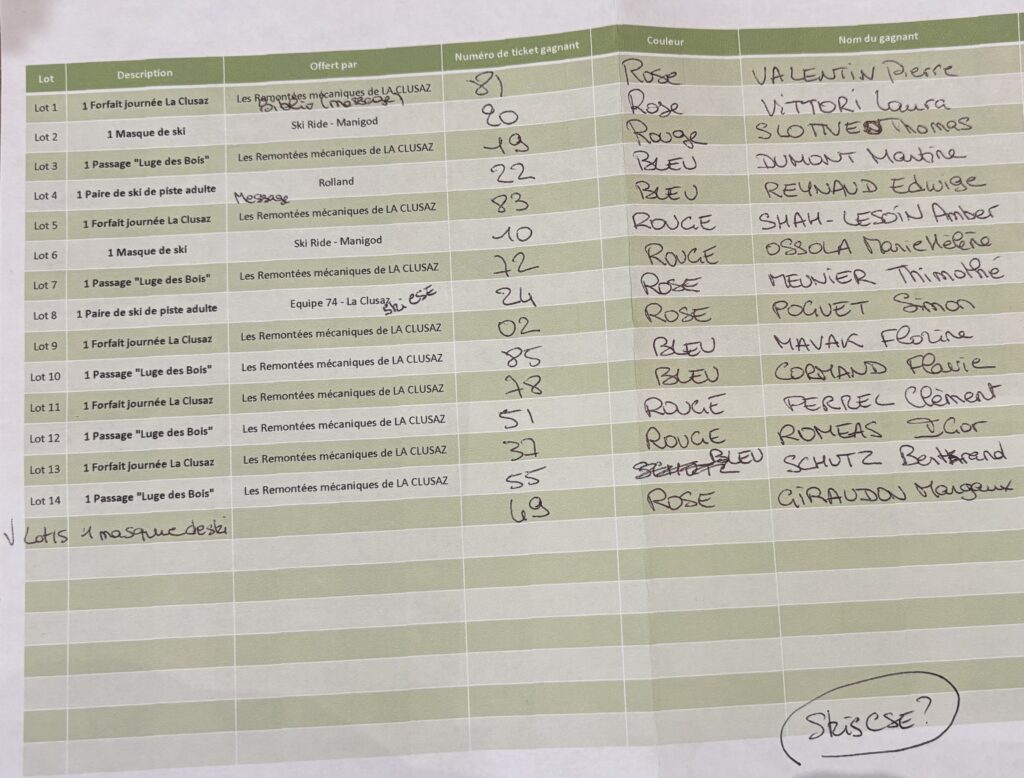 Lot Description Offert par Numéro de ticket gagnant Couleur Nom du gagnant
Lot 1 1 Forfait journée La Clusaz Les Remontées mécaniques de LA CLUSAZ 81 Rose VALENTIN Pierre
Lot 2 1 Masque de ski Ski Ride - Manigod 20 Rose VITTORI Laura
Lot 3 1 Passage "Luge des Bois" Les Remontées mécaniques de LA CLUSAZ 19 Rouge Thomas
Lot 4 1 Paire de ski de piste adulte Rolland 22 BLEU DUMONT Martine
Message
Lot 5 1 Forfait journée La Clusaz Les Remontées mécaniques de LA CLUSAZ 83 BLEU REYNAUD Edwige
Lot 6 1 Masque de ski Ski Ride - Manigod 10 ROUGE SHAH-LESOIN Amber
Lot 7 1 Passage "Luge des Bois" Les Remontées mécaniques de LA CLUSAZ 72 ROUGE OSSOLA Marie Hélène
Lot 8 1 Paire de ski de piste adulte Equipe 74 - La Clusaz Ski CSE 24 ROSE MEUNIER Thimothé
Lot 9 1 Forfait journée La Clusaz Les Remontées mécaniques de LA CLUSAZ 02 ROSE POGUET Simon
Lot 10 1 Passage "Luge des Bois" Les Remontées mécaniques de LA CLUSAZ 85 BLEU MAVAK Florine
Lot 11 1 Forfait journée La Clusaz Les Remontées mécaniques de LA CLUSAZ 78 BLEU CORMAND Flavie
Lot 12 1 Passage "Luge des Bois" Les Remontées mécaniques de LA CLUSAZ 51 ROUGE PERREL Clèment
Lot 13 1 Forfait journée La Clusaz Les Remontées mécaniques de LA CLUSAZ 37 ROUGE ROMEAS IGor
Lot 14 1 Passage "Luge des Bois" Les Remontées mécaniques de LA CLUSAZ 55 BLEU SCHUTZ Bertrand
Lot 15 1 masque de ski 49 ROSE GIRAUDON Margaux
Skis CSE?